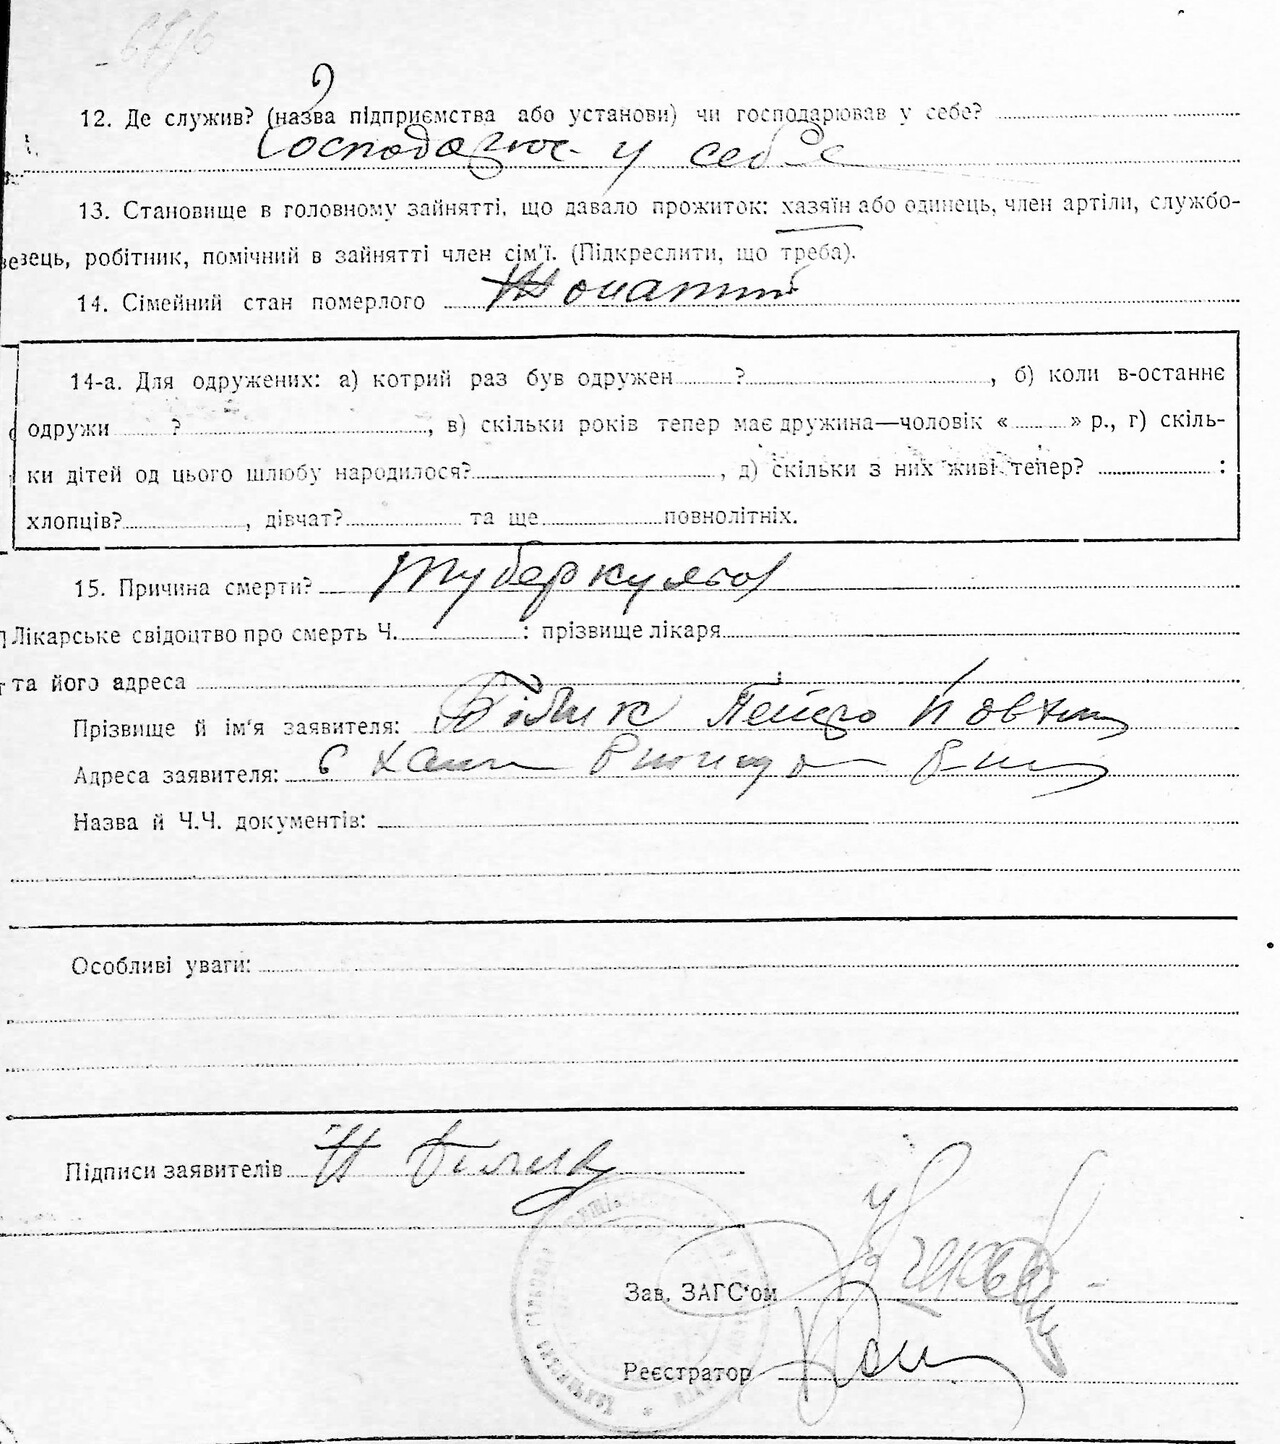 12. Де служив? (назва підприємства або установи) чи господарював у себе?
Господарює у себе
13. Становище в головному зайнятті, що давало прожиток: хазяїн або одинець, член артіли, службо-
везець, робітник, помічний в зайнятті член сім'ї. (Підкреслити, що треба).
14. Сімейний стан померлого Жонатий
14-а. Для одружених: а) котрий раз був одружен ? , б) коли в-останнє
одружи ? , в) скільки років тепер має дружина—чоловік « » р., г) скіль-
ки дітей од цього шлюбу народилося? , д) скільки з них живі тепер? :
хлопців? , дівчат? та ще повнолітніх.
15. Причина смерти? туберкульоз
Лікарське свідоцтво про смерть Ч. : прізвище лікаря
та його адреса
Прізвище й ім'я заявителя: Білик Петро
Адреса заявителя: с
Назва й Ч.Ч. документів:
Особливі уваги:
Підписи заявителів П Билик
Зав. ЗАГС'ом
Реєстратор